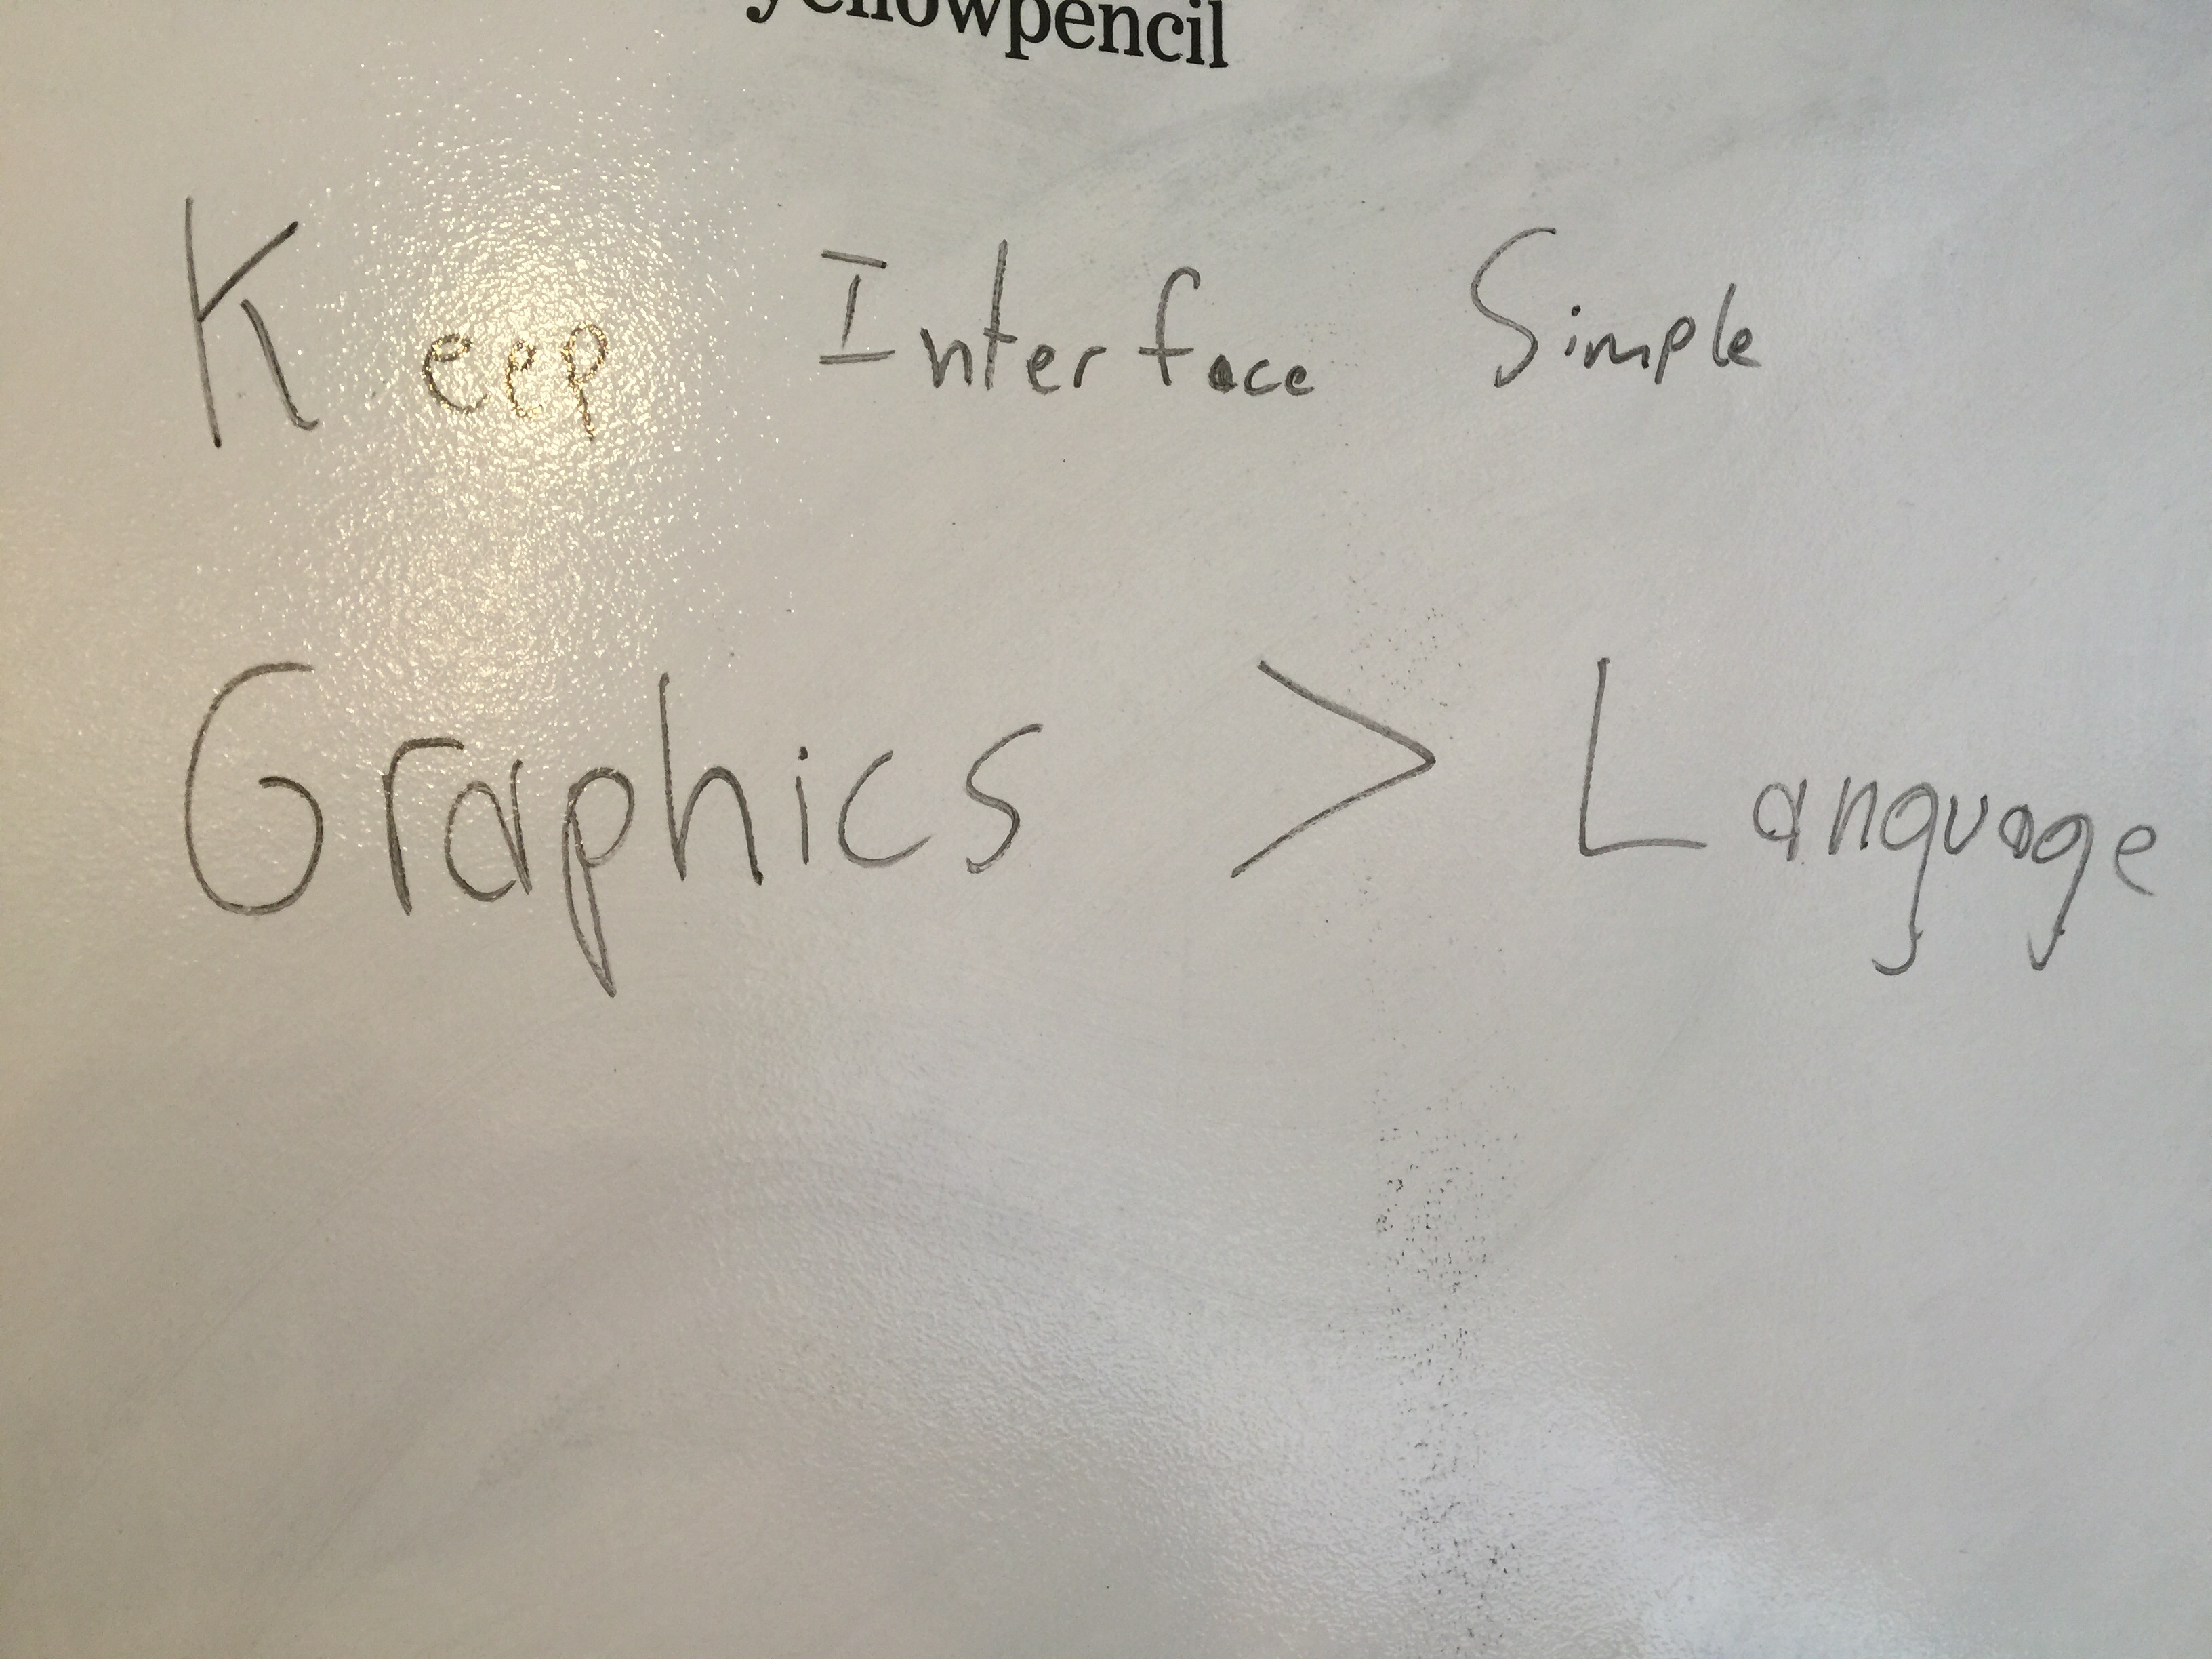 yellowpencil
Keep Interface Simple
Graphics > Language